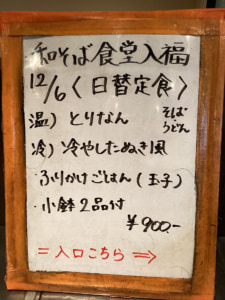 和そば食堂入福
12/6〈日替定食〉
温）とりなん
そば
うどん
冷）冷やしたぬき風
ふりかけごはん（玉子）
小鉢2品付
¥900.-
＝入口こちら⇒